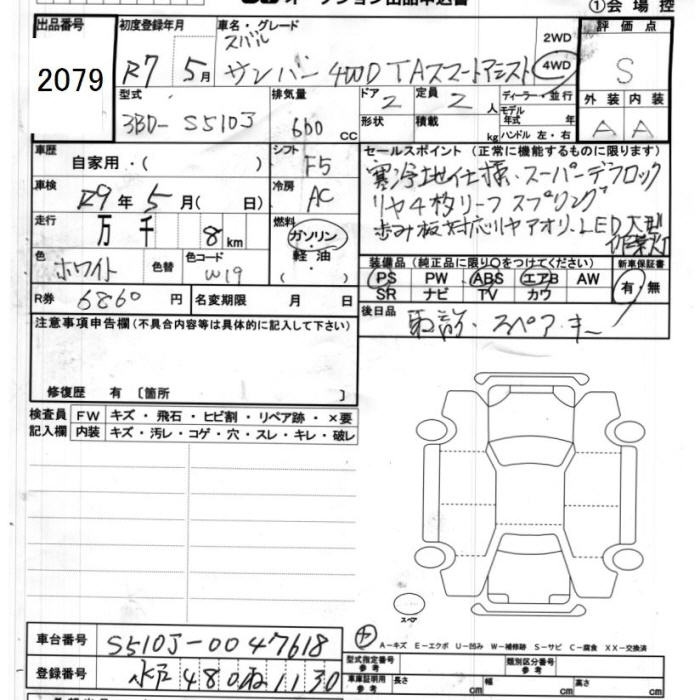 オークション出品申込書
①会場控
出品番号 2079
初度登録年月 R7年 5月
車名・グレード スバル
サンバー 4WD TAスマートアシスト
2WD
4WD
評価点 S
型式 3BD-S510J
排気量 660 cc
ドア 2
形状
定員 2 人
積載 kg
ディーラー・並行
モデル年式 年
ハンドル 左・右
外装 内装
A A
車歴 自家用・( )
シフト F5
車検 R9年 5月( 日)
冷房 AC
走行 万 千 8 km
燃料 ガソリン・軽油 ( )
色 ホワイト 色替
色コード W19
R券 6860 円
名変期限 月 日
セールスポイント(正常に機能するものに限ります)
寒冷地仕様・スーパーデフロック
リヤ4枚リーフスプリング
歩み板対応リヤアオリ・LED大型
作業灯
装備品(純正品に限り○をつけてください)
PS PW ABS エアB AW
SR ナビ TV カワ
新車保証書
有・無
後日品 取説・スペアキー
注意事項申告欄(不具合内容等は具体的に記入して下さい)
修復歴 有〔箇所 〕
検査員記入欄
FW キズ・飛石・ヒビ割・リペア跡・×要
内装 キズ・汚レ・コゲ・穴・スレ・キレ・破レ
スペア
A-キズ E-エクボ U-凹み W-補修跡 S-サビ C-腐食 XX-交換済
車台番号 S510J-0047618
登録番号 水戸 480 ね 1130
型式指定番号 参考
類別区分番号 参考
車庫証明用 参考
長さ cm 幅 cm 高さ cm